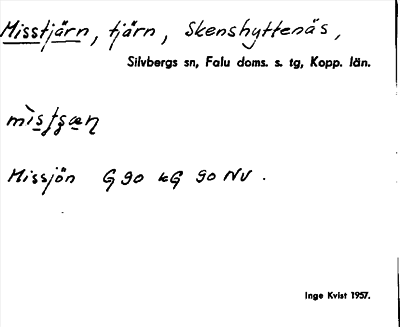 Misstjärn, tjärn, Skenshyttenäs,
Silvbergs sn, Falu doms. s. tg, Kopp. län.
Missjön G 90 kG 90 NV.
Inge Kvist 1957.